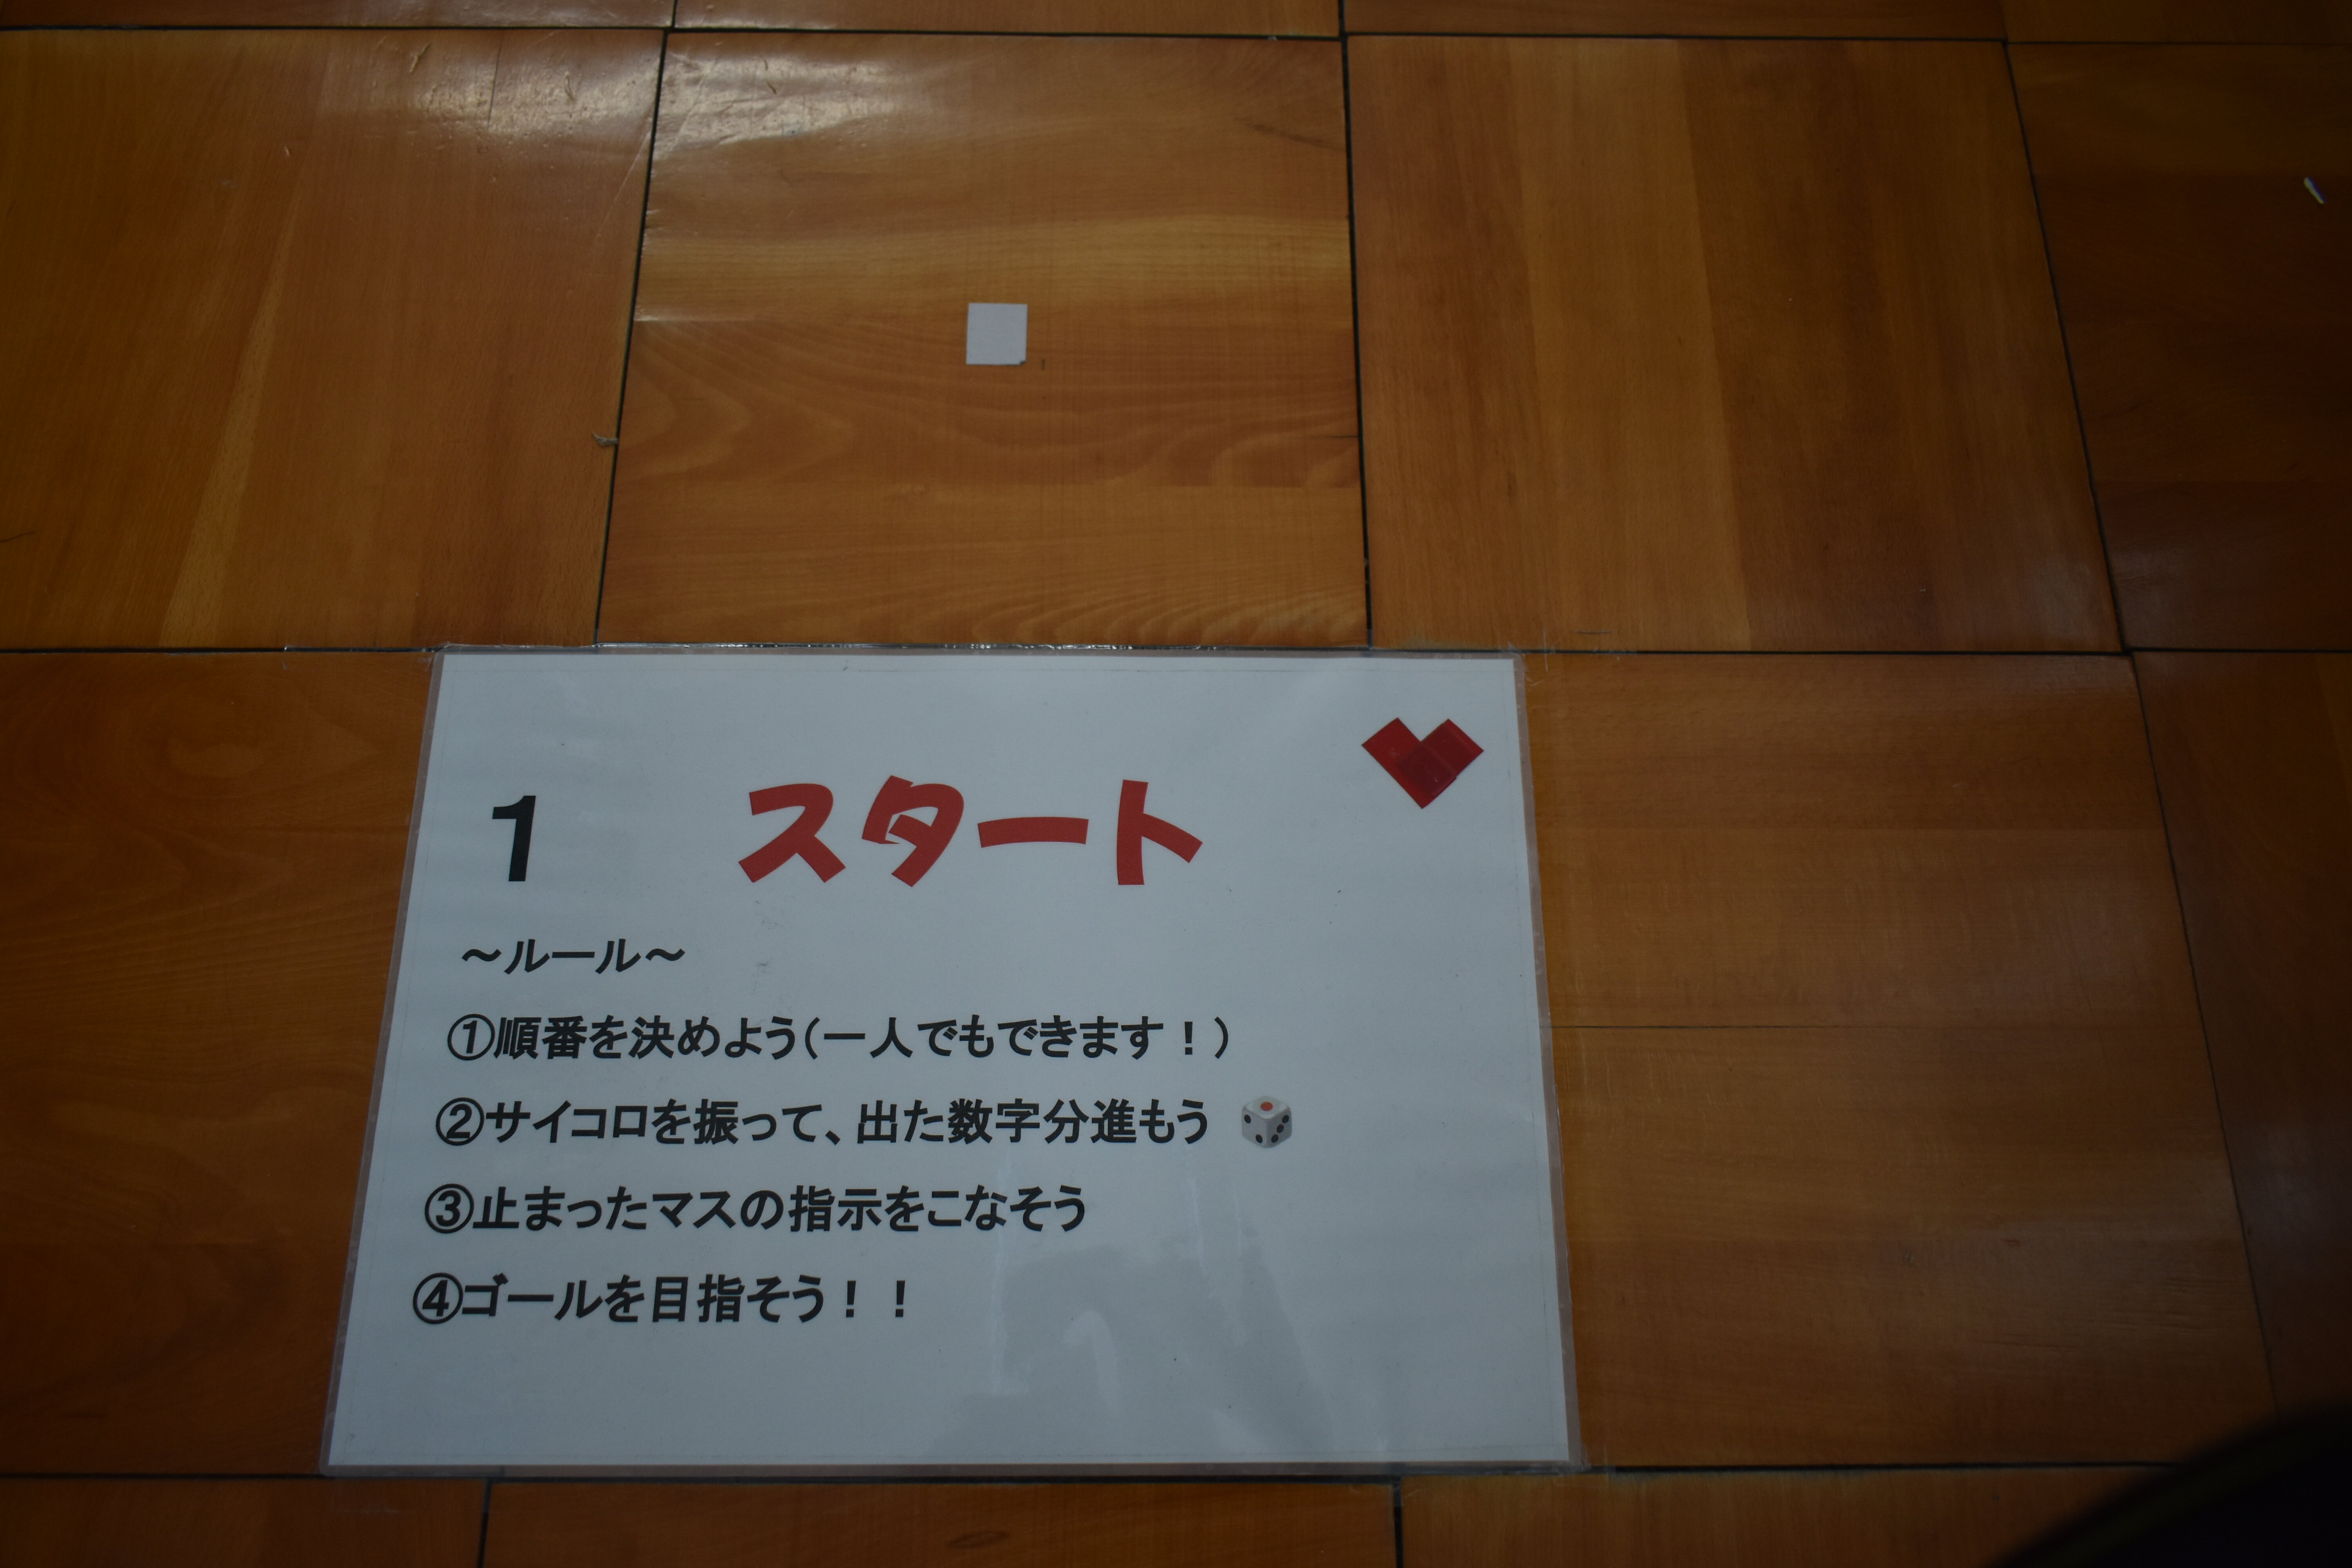 1 スタート
～ルール～
①順番を決めよう（一人でもできます！）
②サイコロを振って、出た数字分進もう
③止まったマスの指示をこなそう
④ゴールを目指そう！！